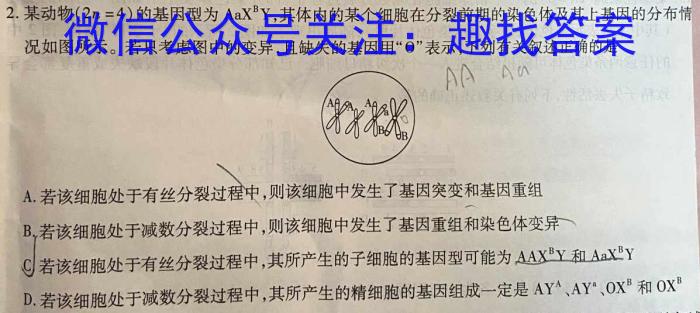 2. 某动物(2n=4)的基因型为 AaXᴮY,其体内的某个细胞在分裂前期的染色体及其上基因的分布情
微信公众号关注:趣找答案
况如图所示。若只考虑图中的变异,且缺失的基因用“O”表示,下列有关叙述正确的是
AA Aa
A A A a B B
A. 若该细胞处于有丝分裂过程中,则该细胞中发生了基因突变和基因重组
B. 若该细胞处于减数分裂过程中,则该细胞中发生了基因重组和染色体变异
C. 若该细胞处于有丝分裂过程中,其所产生的子细胞的基因型可能为 AAXᴮY 和 AaXᴮY
D. 若该细胞处于减数分裂过程中,其所产生的精细胞的基因组成一定是 AYᴬ、AYᵃ、OXᴮ 和 OXᴮ